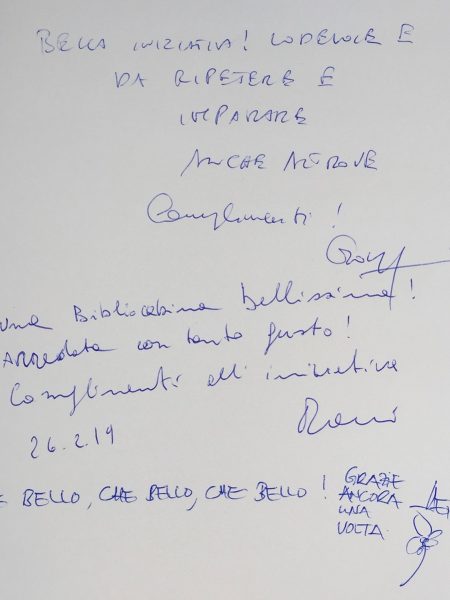 BELLA INIZIATIVA! LODEVOLE E
DA RIPETERE E
IMPARARE
ANCHE ALTROVE
Complimenti!
una Bibliocabina bellissima!
Arredata con tanto gusto!
Complimenti all'iniziativa
26.2.19
E BELLO, CHE BELLO, CHE BELLO!
GRAZIE
ANCORA
UNA
VOLTA